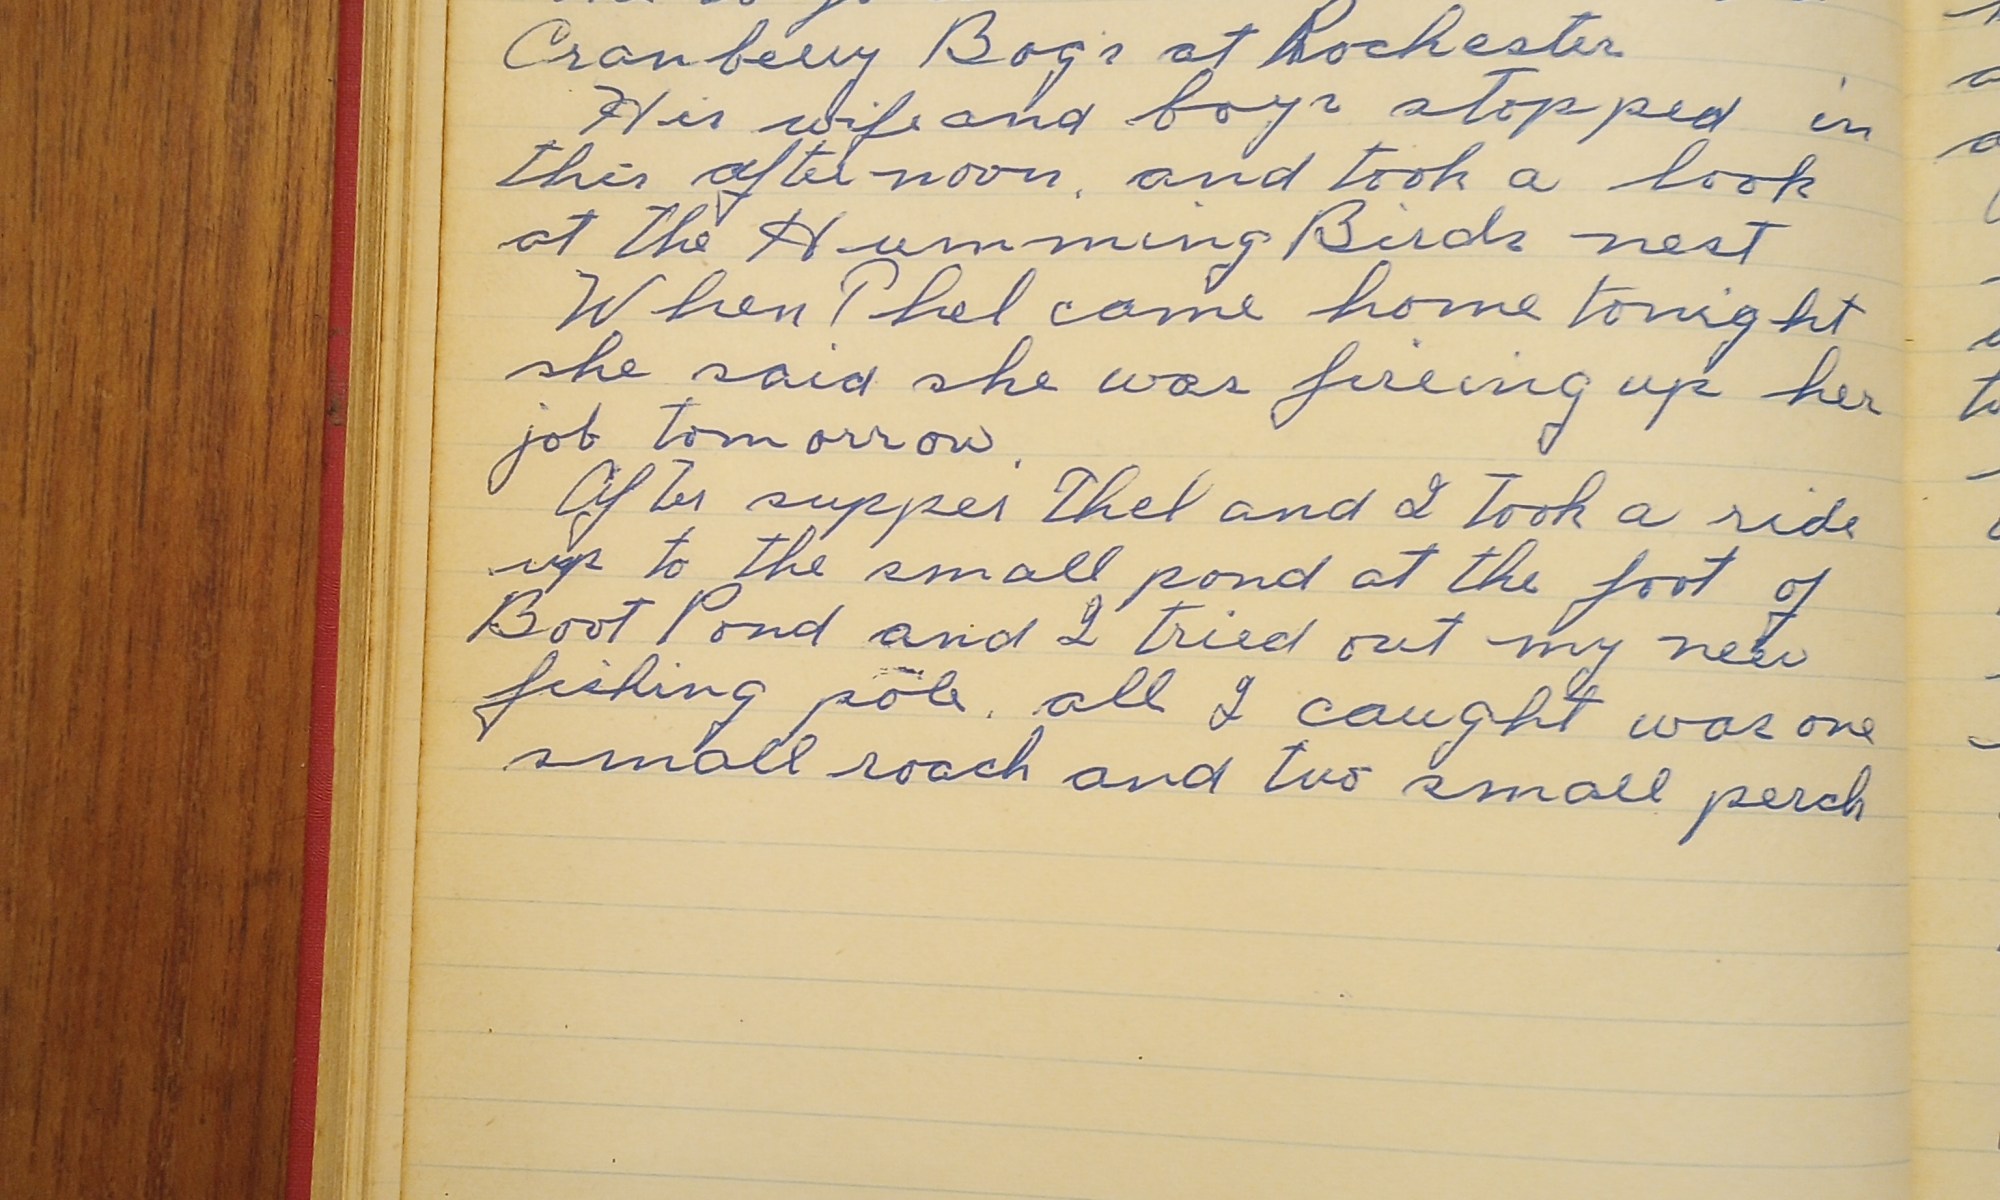 Cranberry Bogs at Rochester
His wife and boys stopped in
this afternoon, and took a look
at the Humming Birds nest
When Thel came home tonight
she said she was fireing up her
job tomorrow.
After supper Thel and I took a ride
up to the small pond at the foot of
Boot Pond and I tried out my new
fishing pole. all I caught was one
small roach and two small perch